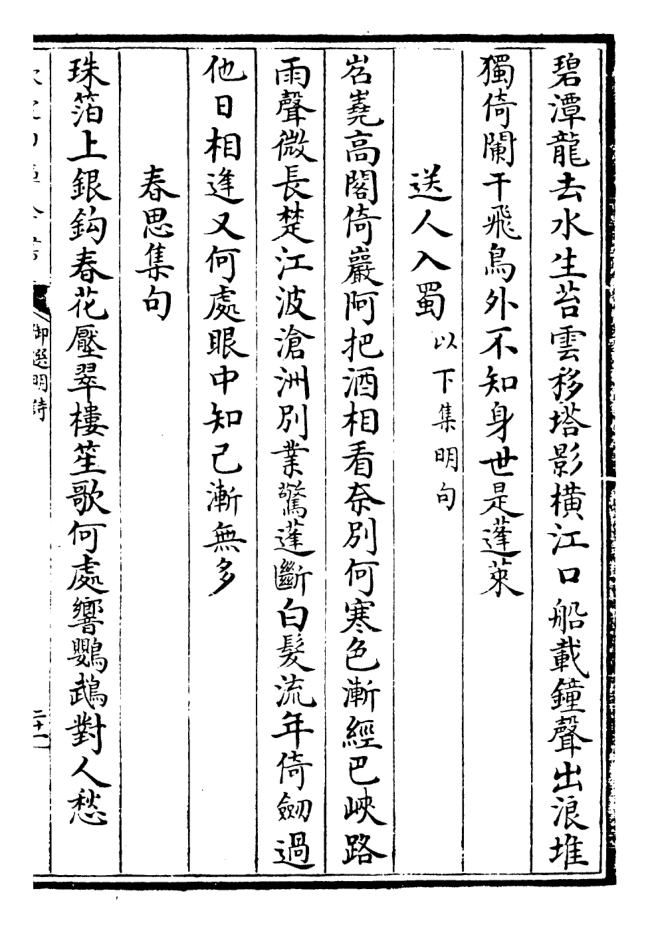 碧潭龍去水生苔雲移塔影橫江口船載鐘聲出浪堆
獨倚闌干飛鳥外不知身世是蓬萊
送人入蜀以下集明句
岧嶤高閣倚巖阿把酒相看奈別何寒色漸經巴峽路
雨聲微長楚江波滄洲別業驚蓬斷白髮流年倚劒過
他日相逢又何處眼中知己漸無多
春思集句
珠箔上銀鈎春花壓翠樓笙歌何處響鸚鵡對人愁
御選明詩
二十一